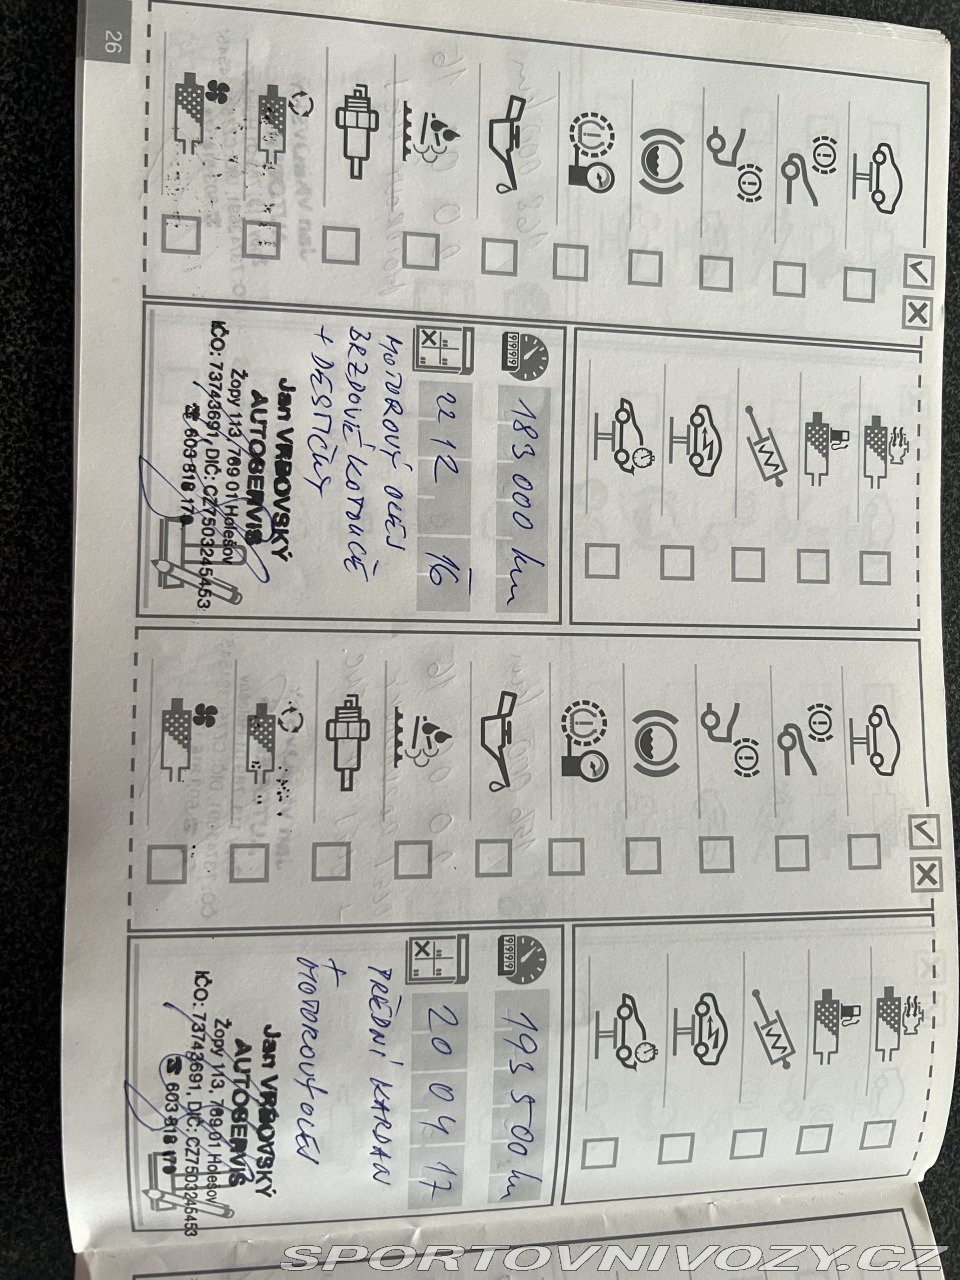 26
183 000 km
22 12 16
MOTOROVÝ OLEJ
BRZDOVÉ KOTOUČE
+ DESTIČKY
Jan VRBOVSKÝ
AUTOSERVIS
Žopy 113, 769 01 Holešov
IČO: 73743691, DIČ: CZ7503245453
☎ 603 818 179
193 500 km
20 04 17
PŘEDNÍ KARDAN
+
MOTOROVÝ OLEJ
Jan VRBOVSKÝ
AUTOSERVIS
Žopy 113, 769 01 Holešov
IČO: 73743691, DIČ: CZ7503245453
☎ 603 818 179
SPORTOVNIVOZY.CZ